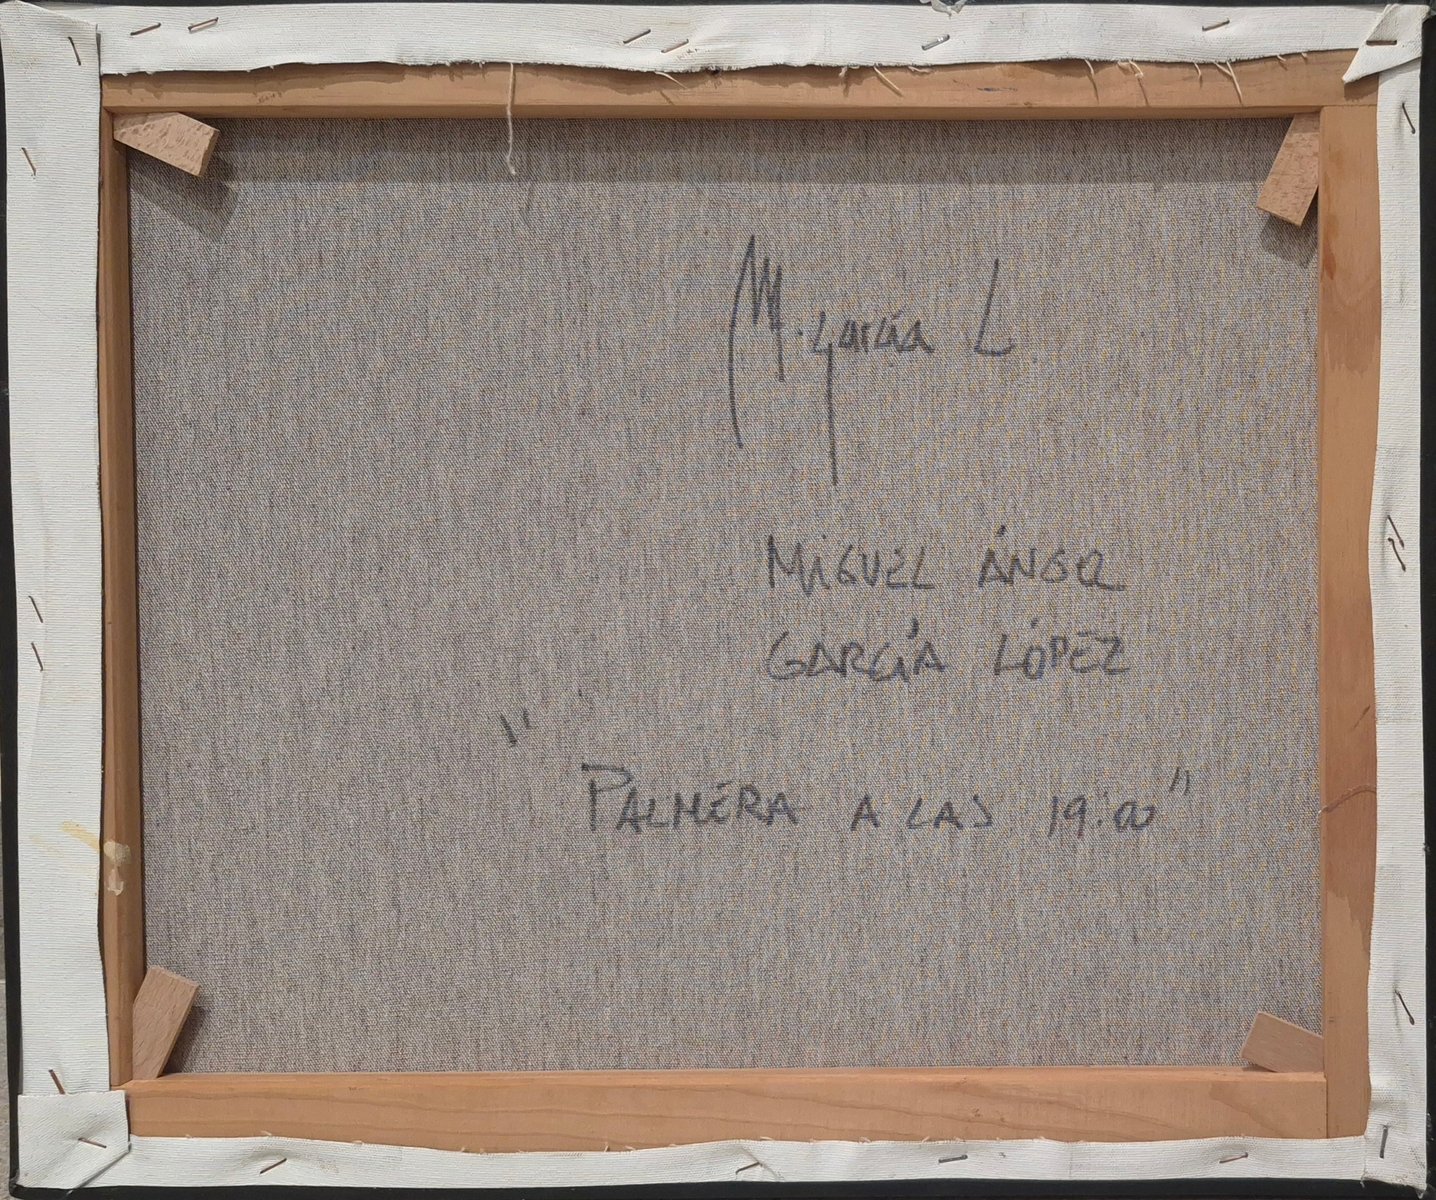 M. García L
MIGUEL ÁNGEL
GARCÍA LÓPEZ
"PALMERA A LAS 19:00"